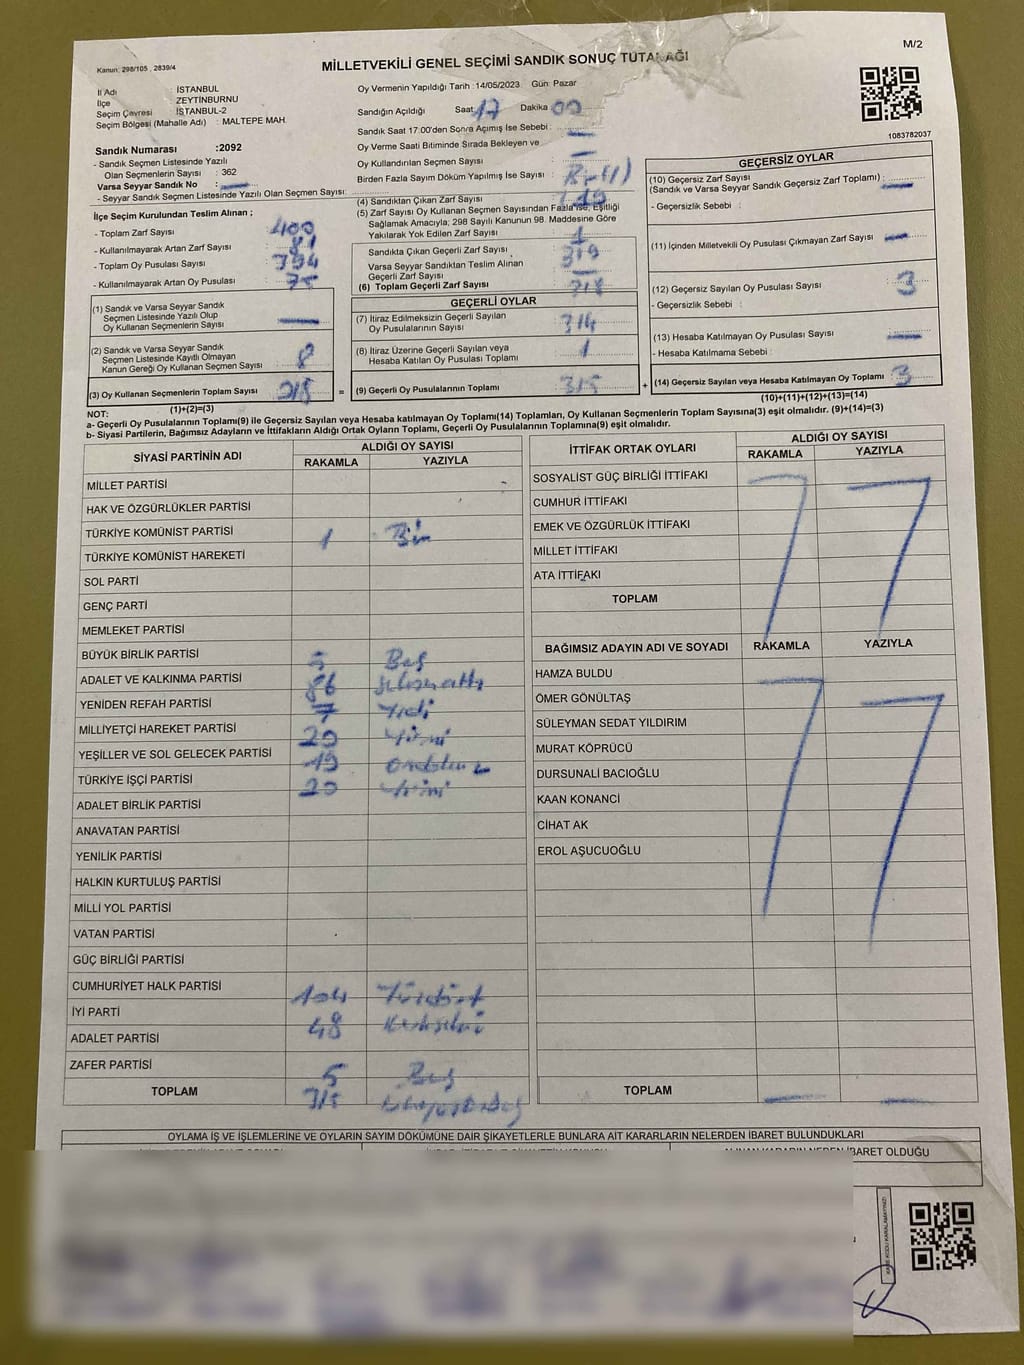 M/2
Kanun: 298/105 , 2839/4
MİLLETVEKİLİ GENEL SEÇİMİ SANDIK SONUÇ TUTANAĞI
İl Adı : İSTANBUL
İlçe : ZEYTİNBURNU
Seçim Çevresi : İSTANBUL-2
Seçim Bölgesi (Mahalle Adı) : MALTEPE MAH.
Sandık Numarası :2092
- Sandık Seçmen Listesinde Yazılı
Olan Seçmenlerin Sayısı : 362
Varsa Seyyar Sandık No :
- Seyyar Sandık Seçmen Listesinde Yazılı Olan Seçmen Sayısı:
Oy Vermenin Yapıldığı Tarih : 14/05/2023 Gün: Pazar
Sandığın Açıldığı Saat 17 Dakika 00
Sandık Saat 17:00'den Sonra Açımış İse Sebebi :
Oy Verme Saati Bitiminde Sırada Bekleyen ve
Oy Kullandırılan Seçmen Sayısı
Birden Fazla Sayım Döküm Yapılmış İse Sayısı : Bir(1)
1083782037
İlçe Seçim Kurulundan Teslim Alınan ;
- Toplam Zarf Sayısı : 400
- Kullanılmayarak Artan Zarf Sayısı : 81
- Toplam Oy Pusulası Sayısı : 394
- Kullanılmayarak Artan Oy Pusulası : 75
(1) Sandık ve Varsa Seyyar Sandık
Seçmen Listesinde Yazılı Olup
Oy Kullanan Seçmenlerin Sayısı
(2) Sandık ve Varsa Seyyar Sandık
Seçmen Listesinde Kayıtlı Olmayan
Kanun Gereği Oy Kullanan Seçmen Sayısı : 8
(3) Oy Kullanan Seçmenlerin Toplam Sayısı 318
(1)+(2)=(3)
(4) Sandıktan Çıkan Zarf Sayısı
(5) Zarf Sayısı Oy Kullanan Seçmen Sayısından Fazla ise, Eşitliği
Sağlamak Amacıyla; 298 Sayılı Kanunun 98. Maddesine Göre
Yakılarak Yok Edilen Zarf Sayısı : 1
Sandıkta Çıkan Geçerli Zarf Sayısı : 319
Varsa Seyyar Sandıktan Teslim Alınan
Geçerli Zarf Sayısı
(6) Toplam Geçerli Zarf Sayısı 318
GEÇERLİ OYLAR
(7) İtiraz Edilmeksizin Geçerli Sayılan
Oy Pusulalarının Sayısı : 314
(8) İtiraz Üzerine Geçerli Sayılan veya
Hesaba Katılan Oy Pusulası Toplamı : 1
= (9) Geçerli Oy Pusulalarının Toplamı : 315
GEÇERSİZ OYLAR
(10) Geçersiz Zarf Sayısı
(Sandık ve Varsa Seyyar Sandık Geçersiz Zarf Toplamı) :
- Geçersizlik Sebebi :
(11) İçinden Milletvekili Oy Pusulası Çıkmayan Zarf Sayısı :
(12) Geçersiz Sayılan Oy Pusulası Sayısı : 3
- Geçersizlik Sebebi :
(13) Hesaba Katılmayan Oy Pusulası Sayısı :
- Hesaba Katılmama Sebebi :
+ (14) Geçersiz Sayılan veya Hesaba Katılmayan Oy Toplamı : 3
(10)+(11)+(12)+(13)=(14)
NOT:
a- Geçerli Oy Pusulalarının Toplamı(9) ile Geçersiz Sayılan veya Hesaba katılmayan Oy Toplamı(14) Toplamları, Oy Kullanan Seçmenlerin Toplam Sayısına(3) eşit olmalıdır. (9)+(14)=(3)
b- Siyasi Partilerin, Bağımsız Adayların ve İttifakların Aldığı Ortak Oyların Toplamı, Geçerli Oy Pusulalarının Toplamına(9) eşit olmalıdır.
SİYASİ PARTİNİN ADI ALDIĞI OY SAYISI
RAKAMLA YAZIYLA
MİLLET PARTİSİ
HAK VE ÖZGÜRLÜKLER PARTİSİ
TÜRKİYE KOMÜNİST PARTİSİ 1 Bir
TÜRKİYE KOMÜNİST HAREKETİ
SOL PARTİ
GENÇ PARTİ
MEMLEKET PARTİSİ
BÜYÜK BİRLİK PARTİSİ 5 Beş
ADALET VE KALKINMA PARTİSİ 86 seksenaltı
YENİDEN REFAH PARTİSİ 7 Yedi
MİLLİYETÇİ HAREKET PARTİSİ 20 Yirmi
YEŞİLLER VE SOL GELECEK PARTİSİ 19 ondokuz
TÜRKİYE İŞÇİ PARTİSİ 20 Yirmi
ADALET BİRLİK PARTİSİ
ANAVATAN PARTİSİ
YENİLİK PARTİSİ
HALKIN KURTULUŞ PARTİSİ
MİLLİ YOL PARTİSİ
VATAN PARTİSİ
GÜÇ BİRLİĞİ PARTİSİ
CUMHURİYET HALK PARTİSİ 104 Yüzdört
İYİ PARTİ 48 Kırksekiz
ADALET PARTİSİ
ZAFER PARTİSİ 5 Beş
TOPLAM 315
İTTİFAK ORTAK OYLARI ALDIĞI OY SAYISI
RAKAMLA YAZIYLA
SOSYALİST GÜÇ BİRLİĞİ İTTİFAKI
CUMHUR İTTİFAKI
EMEK VE ÖZGÜRLÜK İTTİFAKI
MİLLET İTTİFAKI
ATA İTTİFAKI
TOPLAM
BAĞIMSIZ ADAYIN ADI VE SOYADI RAKAMLA YAZIYLA
HAMZA BULDU
ÖMER GÖNÜLTAŞ
SÜLEYMAN SEDAT YILDIRIM
MURAT KÖPRÜCÜ
DURSUNALİ BACIOĞLU
KAAN KONANCİ
CİHAT AK
EROL AŞUCUOĞLU
TOPLAM
OYLAMA İŞ VE İŞLEMLERİNE VE OYLARIN SAYIM DÖKÜMÜNE DAİR ŞİKAYETLERLE BUNLARA AİT KARARLARIN NELERDEN İBARET BULUNDUKLARI
İBARET OLDUĞU